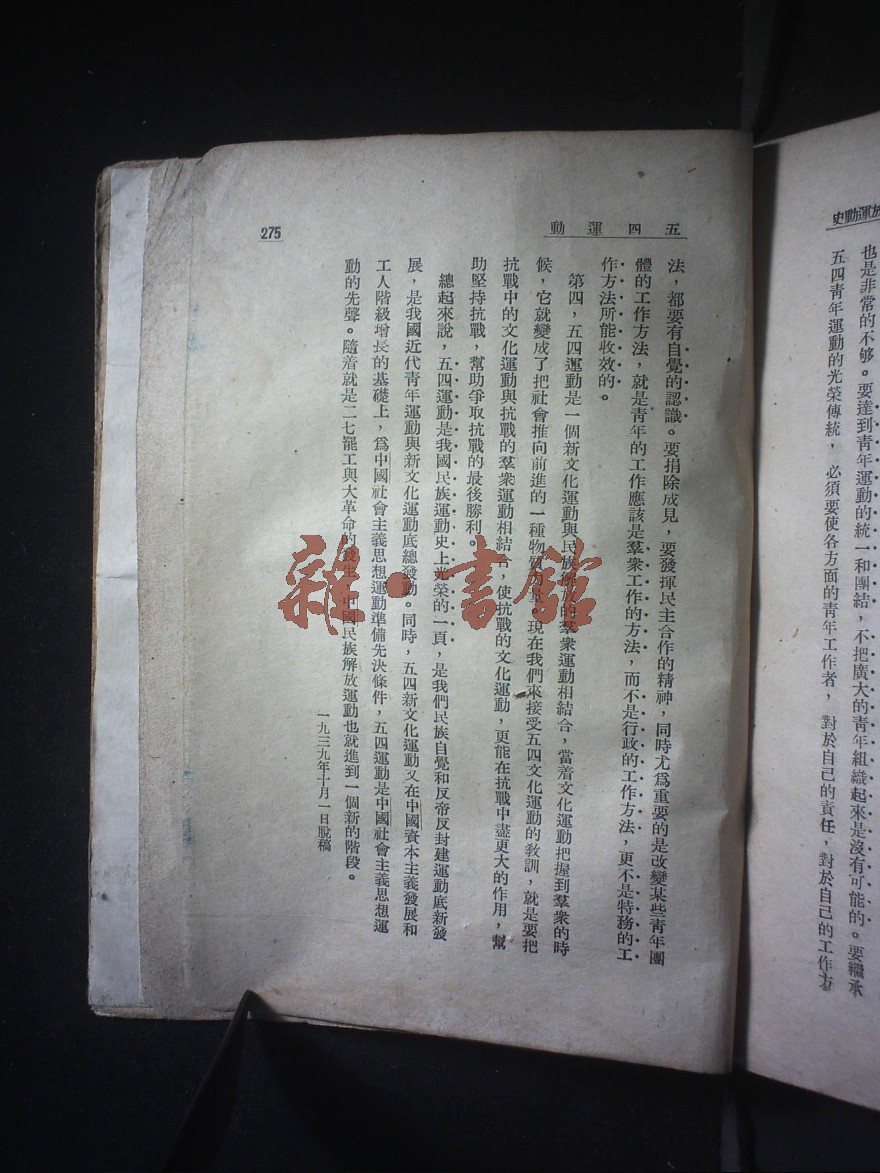 族運動史
也是非常的不够。要達到青年運動的統一和團結，不把廣大的青年組織起來是沒有可能的。要繼承
五四青年運動的光榮傳統，必須要使各方面的青年工作者，對於自己的責任，對於自己的工作方
五四運動
275
法，都要有自覺的認識。要捐除成見，要發揮民主合作的精神，同時尤爲重要的是改變某些青年團
體的工作方法，就是青年的工作應該是羣衆工作的方法，而不是行政的工作方法，更不是特務的工
作方法所能收效的。
第四，五四運動是一個新文化運動與民族解放的羣衆運動相結合，當着文化運動把握到羣衆的時
候，它就變成了把社會推向前進的一種物質力量，現在我們來接受五四文化運動的敎訓，就是要把
抗戰中的文化運動與抗戰的羣衆運動相結合，使抗戰的文化運動，更能在抗戰中盡更大的作用，幫
助堅持抗戰，幫助爭取抗戰的最後勝利。
總起來說，五四運動是我國民族運動史上光榮的一頁，是我們民族自覺和反帝反封建運動底新發
展，是我國近代青年運動與新文化運動底總發動。同時，五四新文化運動又在中國資本主義發展和
工人階級增長的基礎上，爲中國社會主義思想運動準備先決條件，五四運動是中國社會主義思想運
動的先聲。隨着就是二七罷工與大革命的發生，中國民族解放運動也就進到一個新的階段。
一九三九年十月一日脫稿
雜·書館